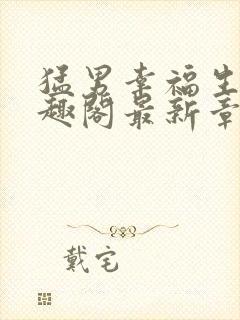 猛男幸福生
趣阁最新章
戴宅